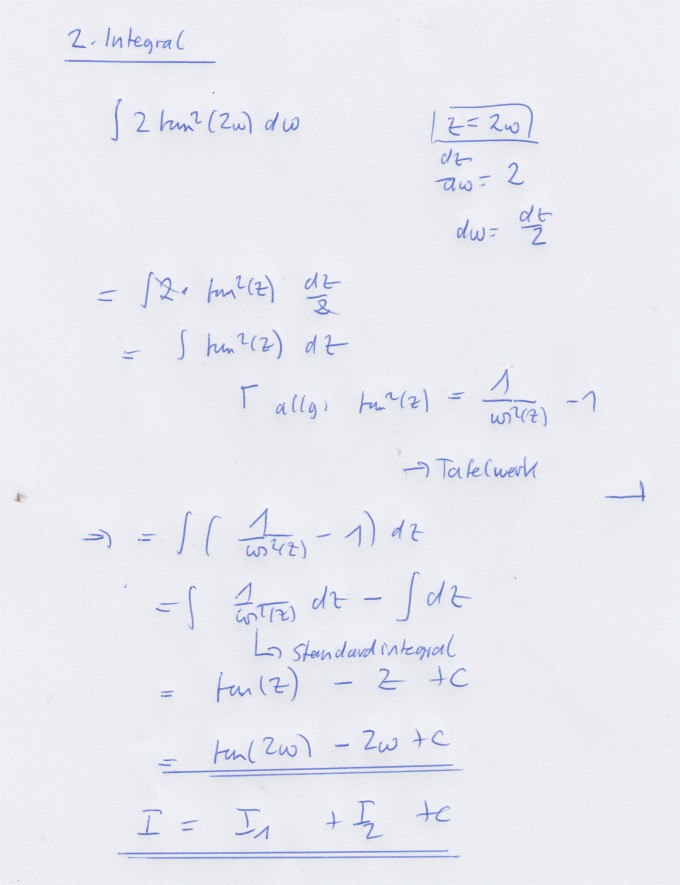 2. Integral
∫ 2 tan²(2ω) dω
z = 2ω
dz/dω = 2
dω = dz/2
= ∫ 2 · tan²(z) dz/2
= ∫ tan²(z) dz
⌈ allg. tan²(z) = 1/cos²(z) - 1
→ Tafelwerk ⌋
⇒ = ∫ ( 1/cos²(z) - 1) dz
= ∫ 1/cos²(z) dz - ∫ dz
↳ Standardintegral
= tan(z) - z + C
= tan(2ω) - 2ω + C
I = I₁ + I₂ + C